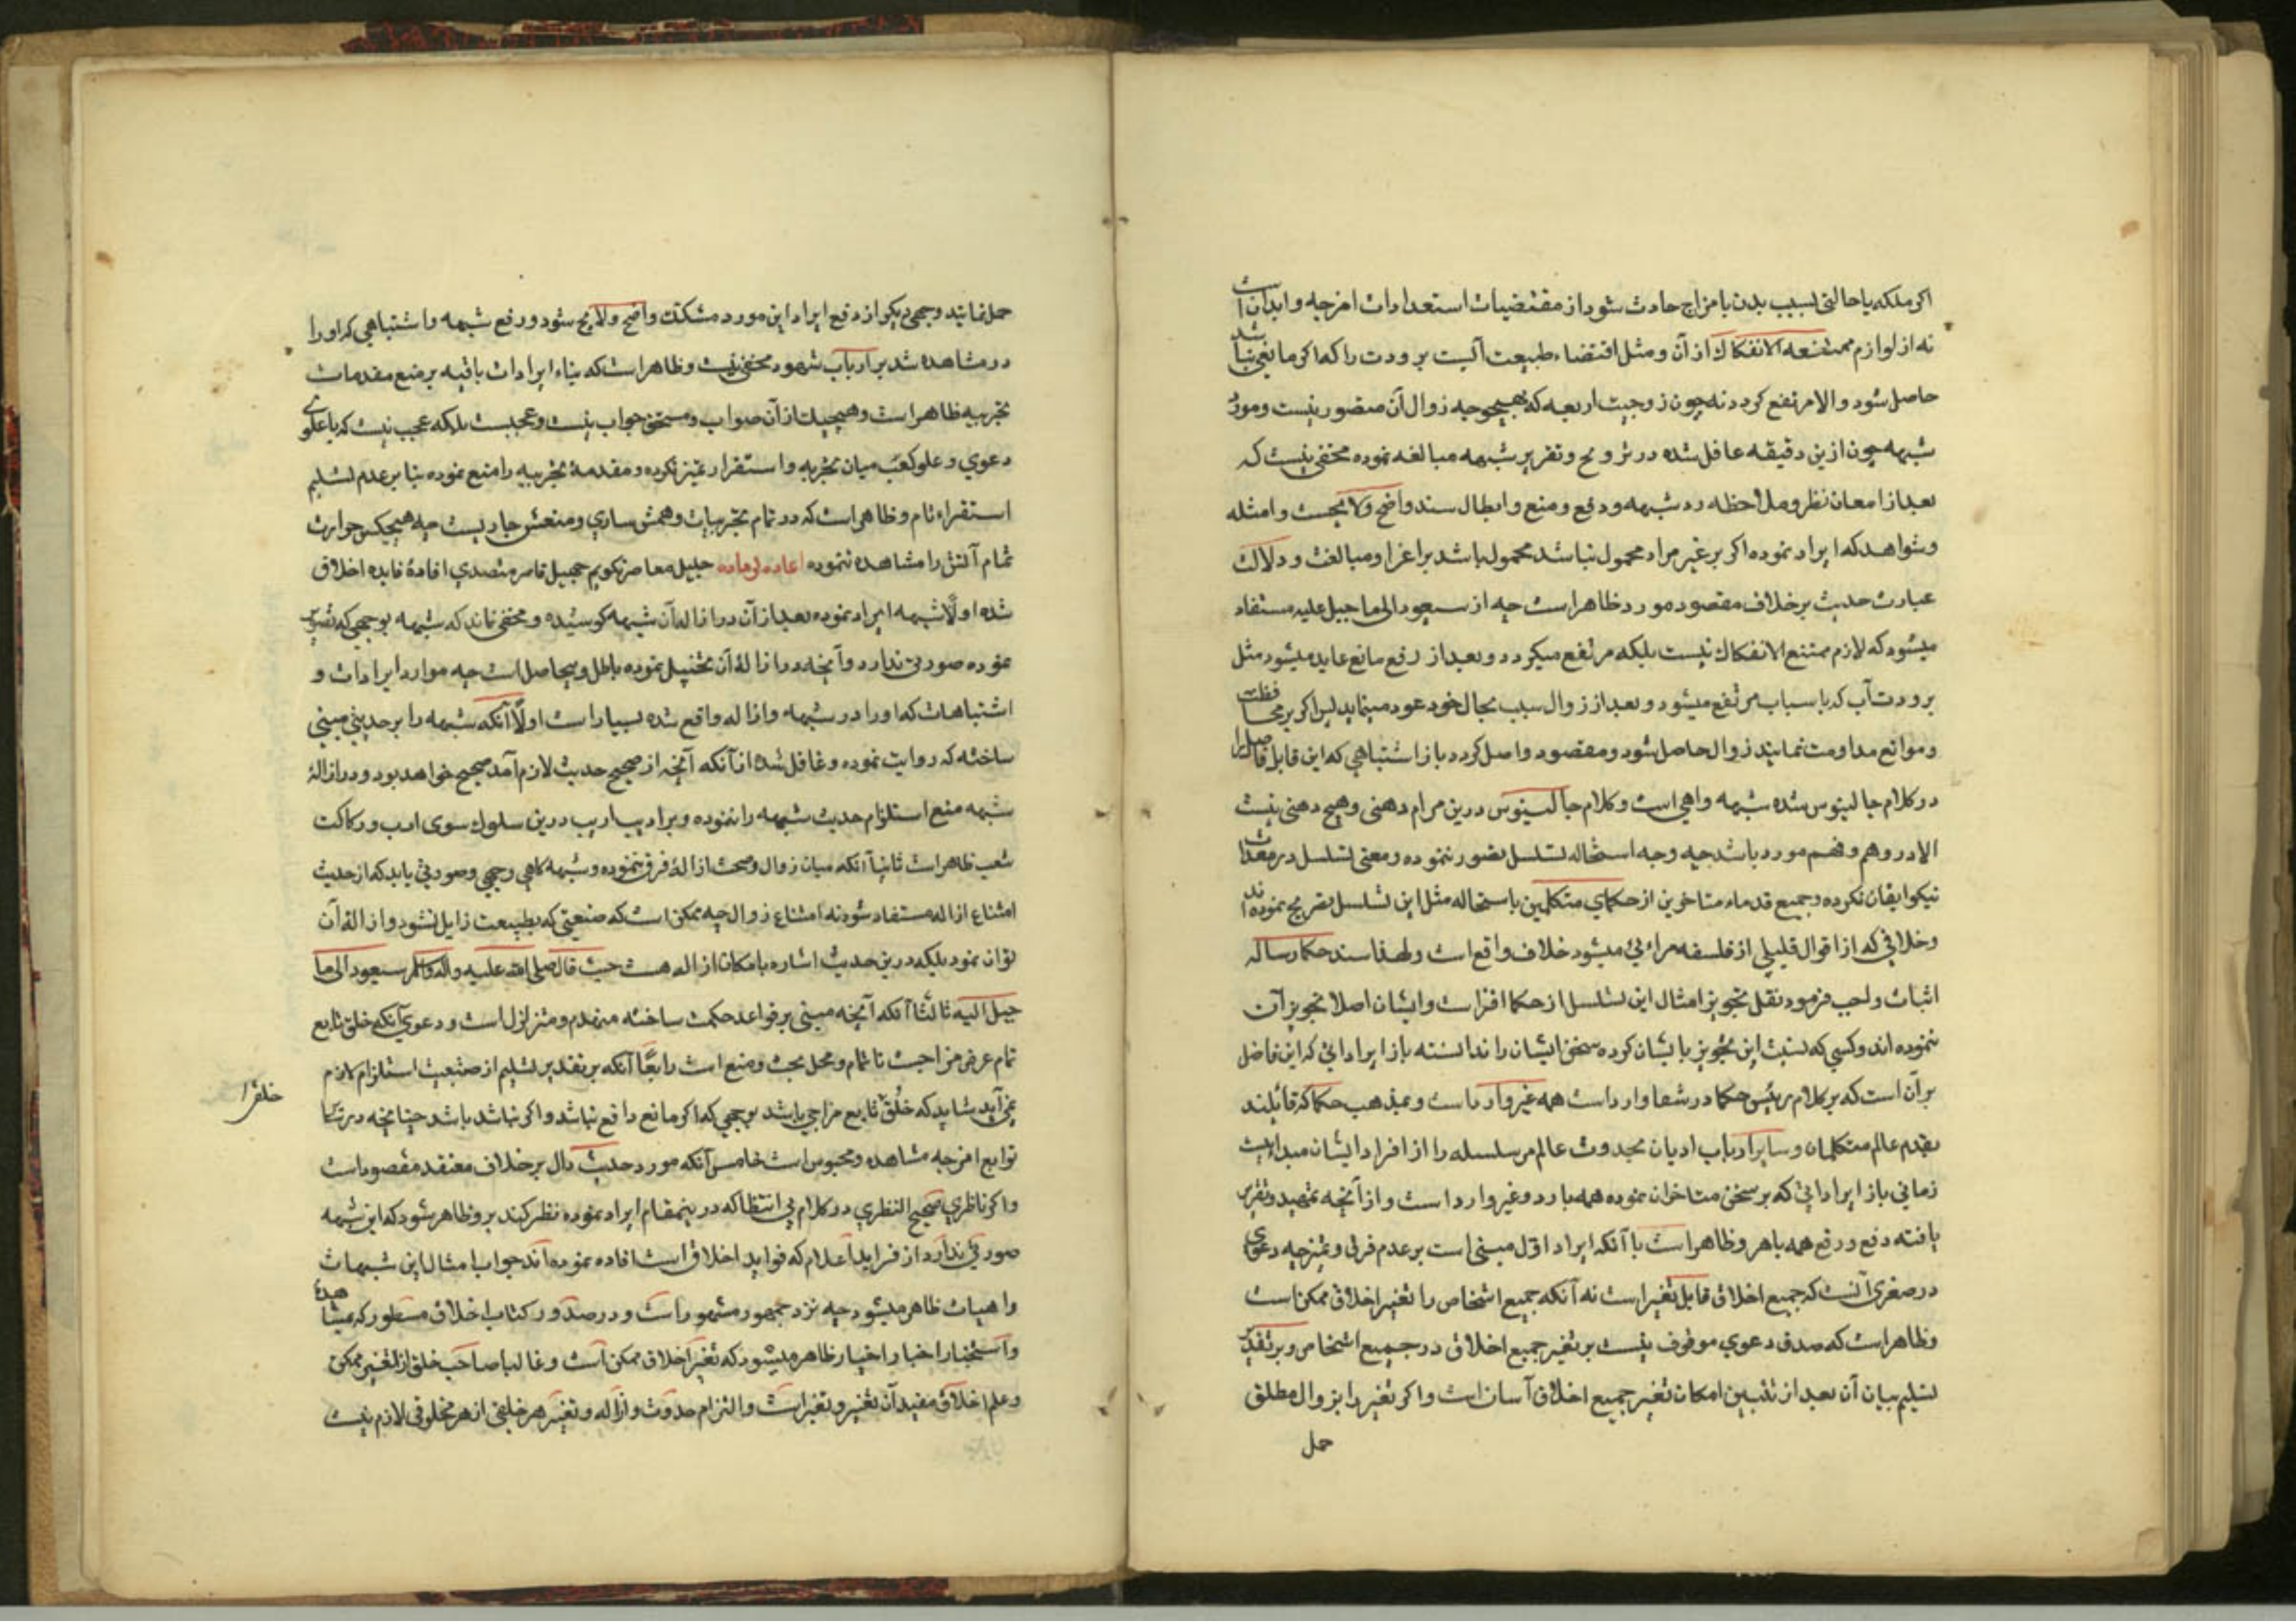 اکر ملکه یا حالتی بسبب بدن یا مزاج حادث شود از مقتضیات استعدادات امزجه و ابدان است
نه از لوازم ممتنعه الانفکاک از آن و مثل اقتضاء طبیعت آبست برودت را که اکر مانعی نباشد
حاصل شود و الا مرتفع کردد نه چون زوجیت اربعه که بهیچوجه زوال آن متصور نیست و مورد
شبهه چون ازین دقیقه غافل شده در ترویج و تقریر شبهه مبالغه نموده مخفی نیست که
بعد از امعان نظر و ملاحظه رد شبهه و دفع و منع و ابطال سند واضح و لایحست و امثله
و شواهد که ایراد نموده اکر بر غیر مراد محمول نباشد محمول باشد بر اغرا و مبالغت و دلالت
عبارت حدیث بر خلاف مقصود مورد ظاهر است چه از سیعود الی ما جبل علیه مستفاد
میشود که لازم ممتنع الانفکاک نیست بلکه مرتفع میکردد و بعد از رفع مانع عاید میشود مثل
برودت آب که باسباب مرتفع میشود و بعد از زوال سبب بحال خود عود مینماید پس اکر بر محافظت
و موانع مداومت نمایند زوال حاصل شود و مقصود واصل کردد باز اشتباهی که این قابل فاصل را
در کلام جالینوس شده شبهه واهی است و کلام جالینوس درین مرام دهنی و هیچ دهنی نیست
الا در وهم و فهم مورد باشد چه وجه استحاله تسلسل تصور ننموده و معنی تسلسل در معدات
نیکو ایقان نکرده و جمیع قدماء متاخرین از حکمای متکلمین باستحاله مثل این تسلسل تصریح نموده اند
و خلافی که از اقوال قلیلی از فلسفه مراءی میشود خلاف واقع است و لهذا سند حکما رساله
اثبات واجب فرمود نقل تجویز امثال این تسلسل از حکما افتراست و ایشان اصلا تجویز آن
ننموده اند و کسی که نسبت این تجویز بایشان کرده سخن ایشان را ندانسته باز ایراداتی که این فاضل
بر آن است که بر کلام رئیس حکما در شفا وارد است همه غیر وارد است و بمذهب حکما که قائلند
بقدم عالم متکلمان و سایر ارباب ادیان بحدوث عالم مر سلسله را از افراد ایشان مبداءیست
زمانی باز ایراداتی که بر سخن متاخران نموده همه بارد و غیر وارد است و از آنچه تمهید و تقریر
یافته دفع و رفع همه باهر و ظاهر است با آنکه ایراد اول مبنی است بر عدم فرق و تمیز چه دعوی
در صغری آنست که جمیع اخلاق قابل تغیر است نه آنکه جمیع اشخاص را تغییر اخلاق ممکن است
و ظاهر است که صدق دعوی موقوف نیست بر تغیر جمیع اخلاق در جمیع اشخاص و بر تقدیر
تسلیم بیان آن بعد از تبیین امکان تغیر جمیع اخلاق آسان است و اکر تغیر را بزوال مطلق
حمل
حمل نمایند وجهی دیکر از دفع ایراد این مورد مشکک واضح و لایح شود و رفع شبهه و اشتباهی که او را
در مشاهده شد بر ارباب شهود مخفی نیست و ظاهر است که بناء ایرادات باقیه بر منع مقدمات
تجربیه ظاهر است و هیچیک از آن صواب و مستحق جواب نیست و عجبست بلکه عجب نیست که با علوی
دعوی و علو کعب میان تجربه و استقرار تمیز نکرده و مقدمهٔ تجربیه را منع نموده بنا بر عدم تسلیم
استقراء تام و ظاهر است که در تمام تجربیات وهمش ساری و منعش جاریست چه هیچکس حرارت
تمام آتش را مشاهده ننموده اعاده لوماده جلیل معاصر نکویم جهیل قاصر متصدی افادهٔ فایده اخلاق
شده اولًا شبهه ایراد نموده بعد از آن در ازالهٔ آن شبهه کوشیده و مخفی نماند که شبهه بوجهی که تصویر
نموده صورتی ندارد و آنچه در ازالهٔ آن تخییل نموده باطل و بیحاصل است چه موارد ایرادات و
اشتباهات که او را در شبهه و ازاله واقع شده بسیار است اولًا آنکه شبهه را بر حدیثی مبنی
ساخته که روایت نموده و غافل شده از آنکه آنچه از صحیح حدیث لازم آمد صحیح خواهد بود و در ازالهٔ
شبهه منع استلزام حدیث شبهه را ننموده و بر ادیب اریب درین سلوک سوی ادب و رکاکت
شعب ظاهر است ثانیًا آنکه میان زوال و صحت ازالهٔ فرق ننموده و شبهه کاهی وجهی و صورتی یابد که از حدیث
امتناع ازاله مستفاد شود نه امتناع زوال چه ممکن است که صنعتی که بطبیعت زایل نشود و ازالهٔ آن
توان نمود بلکه درین حدیث اشاره بامکان ازاله هست حیث قال صلی الله علیه و آله و سلم سیعود الی ما
جبل الیه ثالثًا آنکه آنچه مبنی بر قواعد حکمت ساخته منهدم و متزلزل است و دعوی آنکه خلق تابع
تمام عرض مزاجیست ناتمام و محل بحث و منع است رابعًا آنکه بر تقدیر تسلیم از صتبعیت استلزام لازم
نمی آید شاید که خلق تابع مزاجی باشد بوجهی که اکر مانع دافع نباشد و اکر نباشد باشد چنانچه در
خلقرا
توابع امزجه مشاهده و محسوس است خامس آنکه مورد حدیث دال بر خلاف معتقد مقصود است
و اکر ناظری صحیح النظری در کلام بی انتظام که درینمقام ایراد نموده نظر کند برو ظاهر شود که این شبهه
صورتی ندارد از فراید اعلام که فواید اخلاق است افاده نموده اند جواب امثال این شبهات
واهیات ظاهر میشود چه نزد جمهور مشهور است و در صدور کتاب اخلاق مسطور که بمشاهده
و استخبار اخبار و اخیار ظاهر میشود که تغیر اخلاق ممکن است و غالبا صاحب خلق از تغیر ممکن
و علم اخلاق مفید آن تغیر و تغیر است و التزام حدوث و ازاله و تغیر هر خلقی از هر مخلوقی لازم نیست